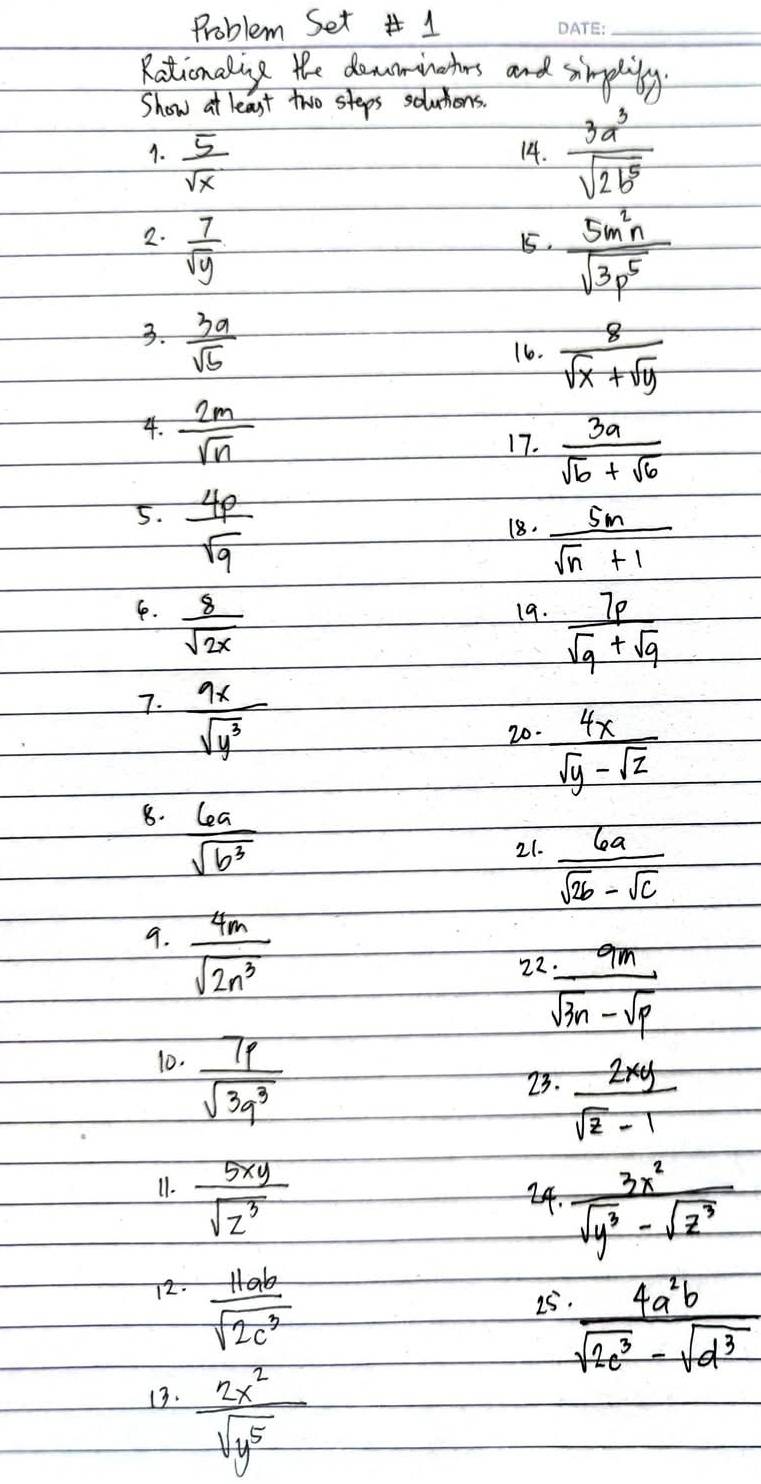 Problem Set # 1
DATE:
Rationalize the denominators and simplify.
Show at least two steps solutions.
1. 5/√x
2. 7/√y
3. 3a/√b
4. 2m/√n
5. 4p/√q
6. 8/√(2x)
7. 9x/√(y³)
8. 6a/√(b³)
9. 4m/√(2n³)
10. 7p/√(3q³)
11. 5xy/√(z³)
12. 11ab/√(2c³)
13. 2x²/√(y⁵)
14. 3a³/√(2b⁵)
15. 5m²n/√(3p⁵)
16. 8/(√x + √y)
17. 3a/(√b + √6)
18. 5m/(√n + 1)
19. 7p/(√q + √9)
20. 4x/(√y - √z)
21. 6a/(√(2b) - √c)
22. 9m/(√(3n) - √p)
23. 2xy/(√z - 1)
24. 3x²/(√(y³) - √(z³))
25. 4a²b/(√(2c³) - √(d³))